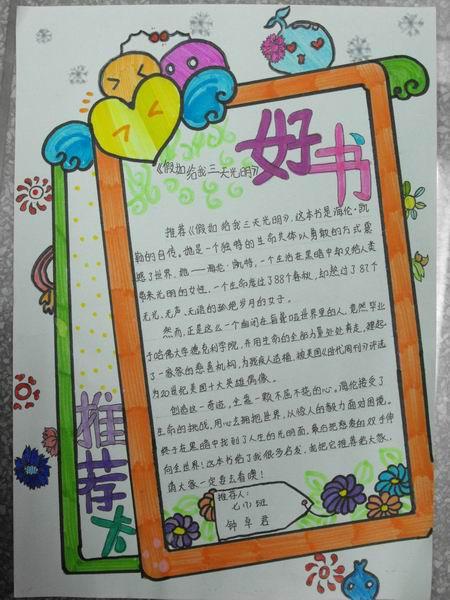 好书
推荐卡
《假如给我三天光明》
推荐《假如给我三天光明》，这本书是海伦·凯
勒的自传。她是一个独特的生命个体以勇敢的方式震
撼了世界，她——海伦·凯特，一个生活在黑暗中却又给人类
带来光明的女性，一个生命度过了88个春秋，却经过了87个
无光、无声、无语的孤绝岁月的女子。
然而，正是这么一个幽闭在盲聋哑世界里的人，竟然毕业
于哈佛大学德克利学院，并用生命的全部力量处处奔走，建起
了一家家的慈善机构，为残疾人造福，被美国《时代周刊》评选
为20世纪美国十大英雄偶像。
创造这一奇迹，全靠一颗不屈不挠的心。海伦接受了
生命的挑战，用心去拥抱世界，以惊人的毅力面对困境，
终于在黑暗中找到了人生的光明面，最后把慈爱的双手伸
向全世界！这本书给了我很多名友，故把它推荐给大家，
请大家一定要去看噢！
推荐人：
七(1)班
钟卓君